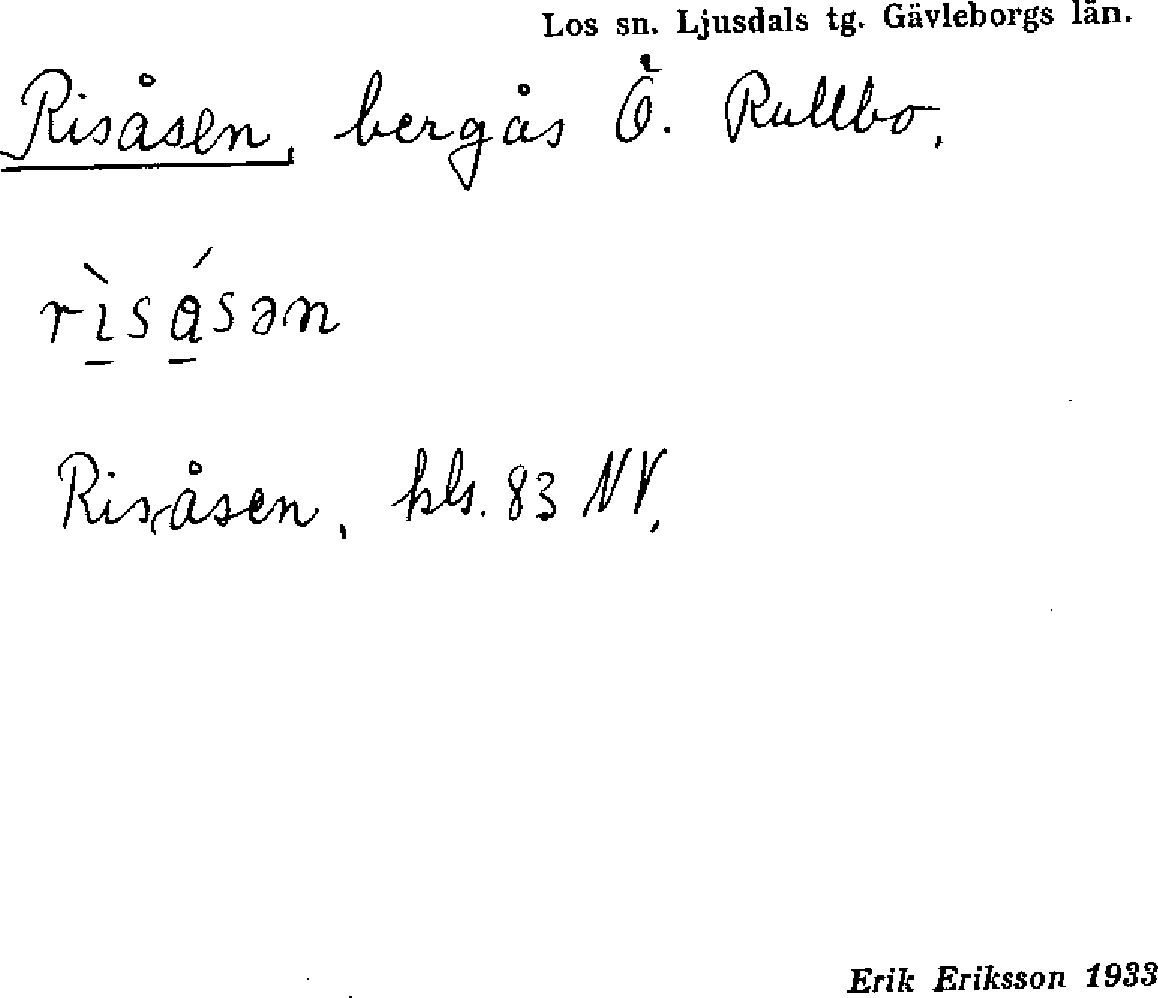 Los sn. Ljusdals tg. Gävleborgs län.
Risåsen, bergås Ö. Rullbo,
rı̱̀sá̱sən
Risåsen, kbs. 83 NV,
Erik Eriksson 1933